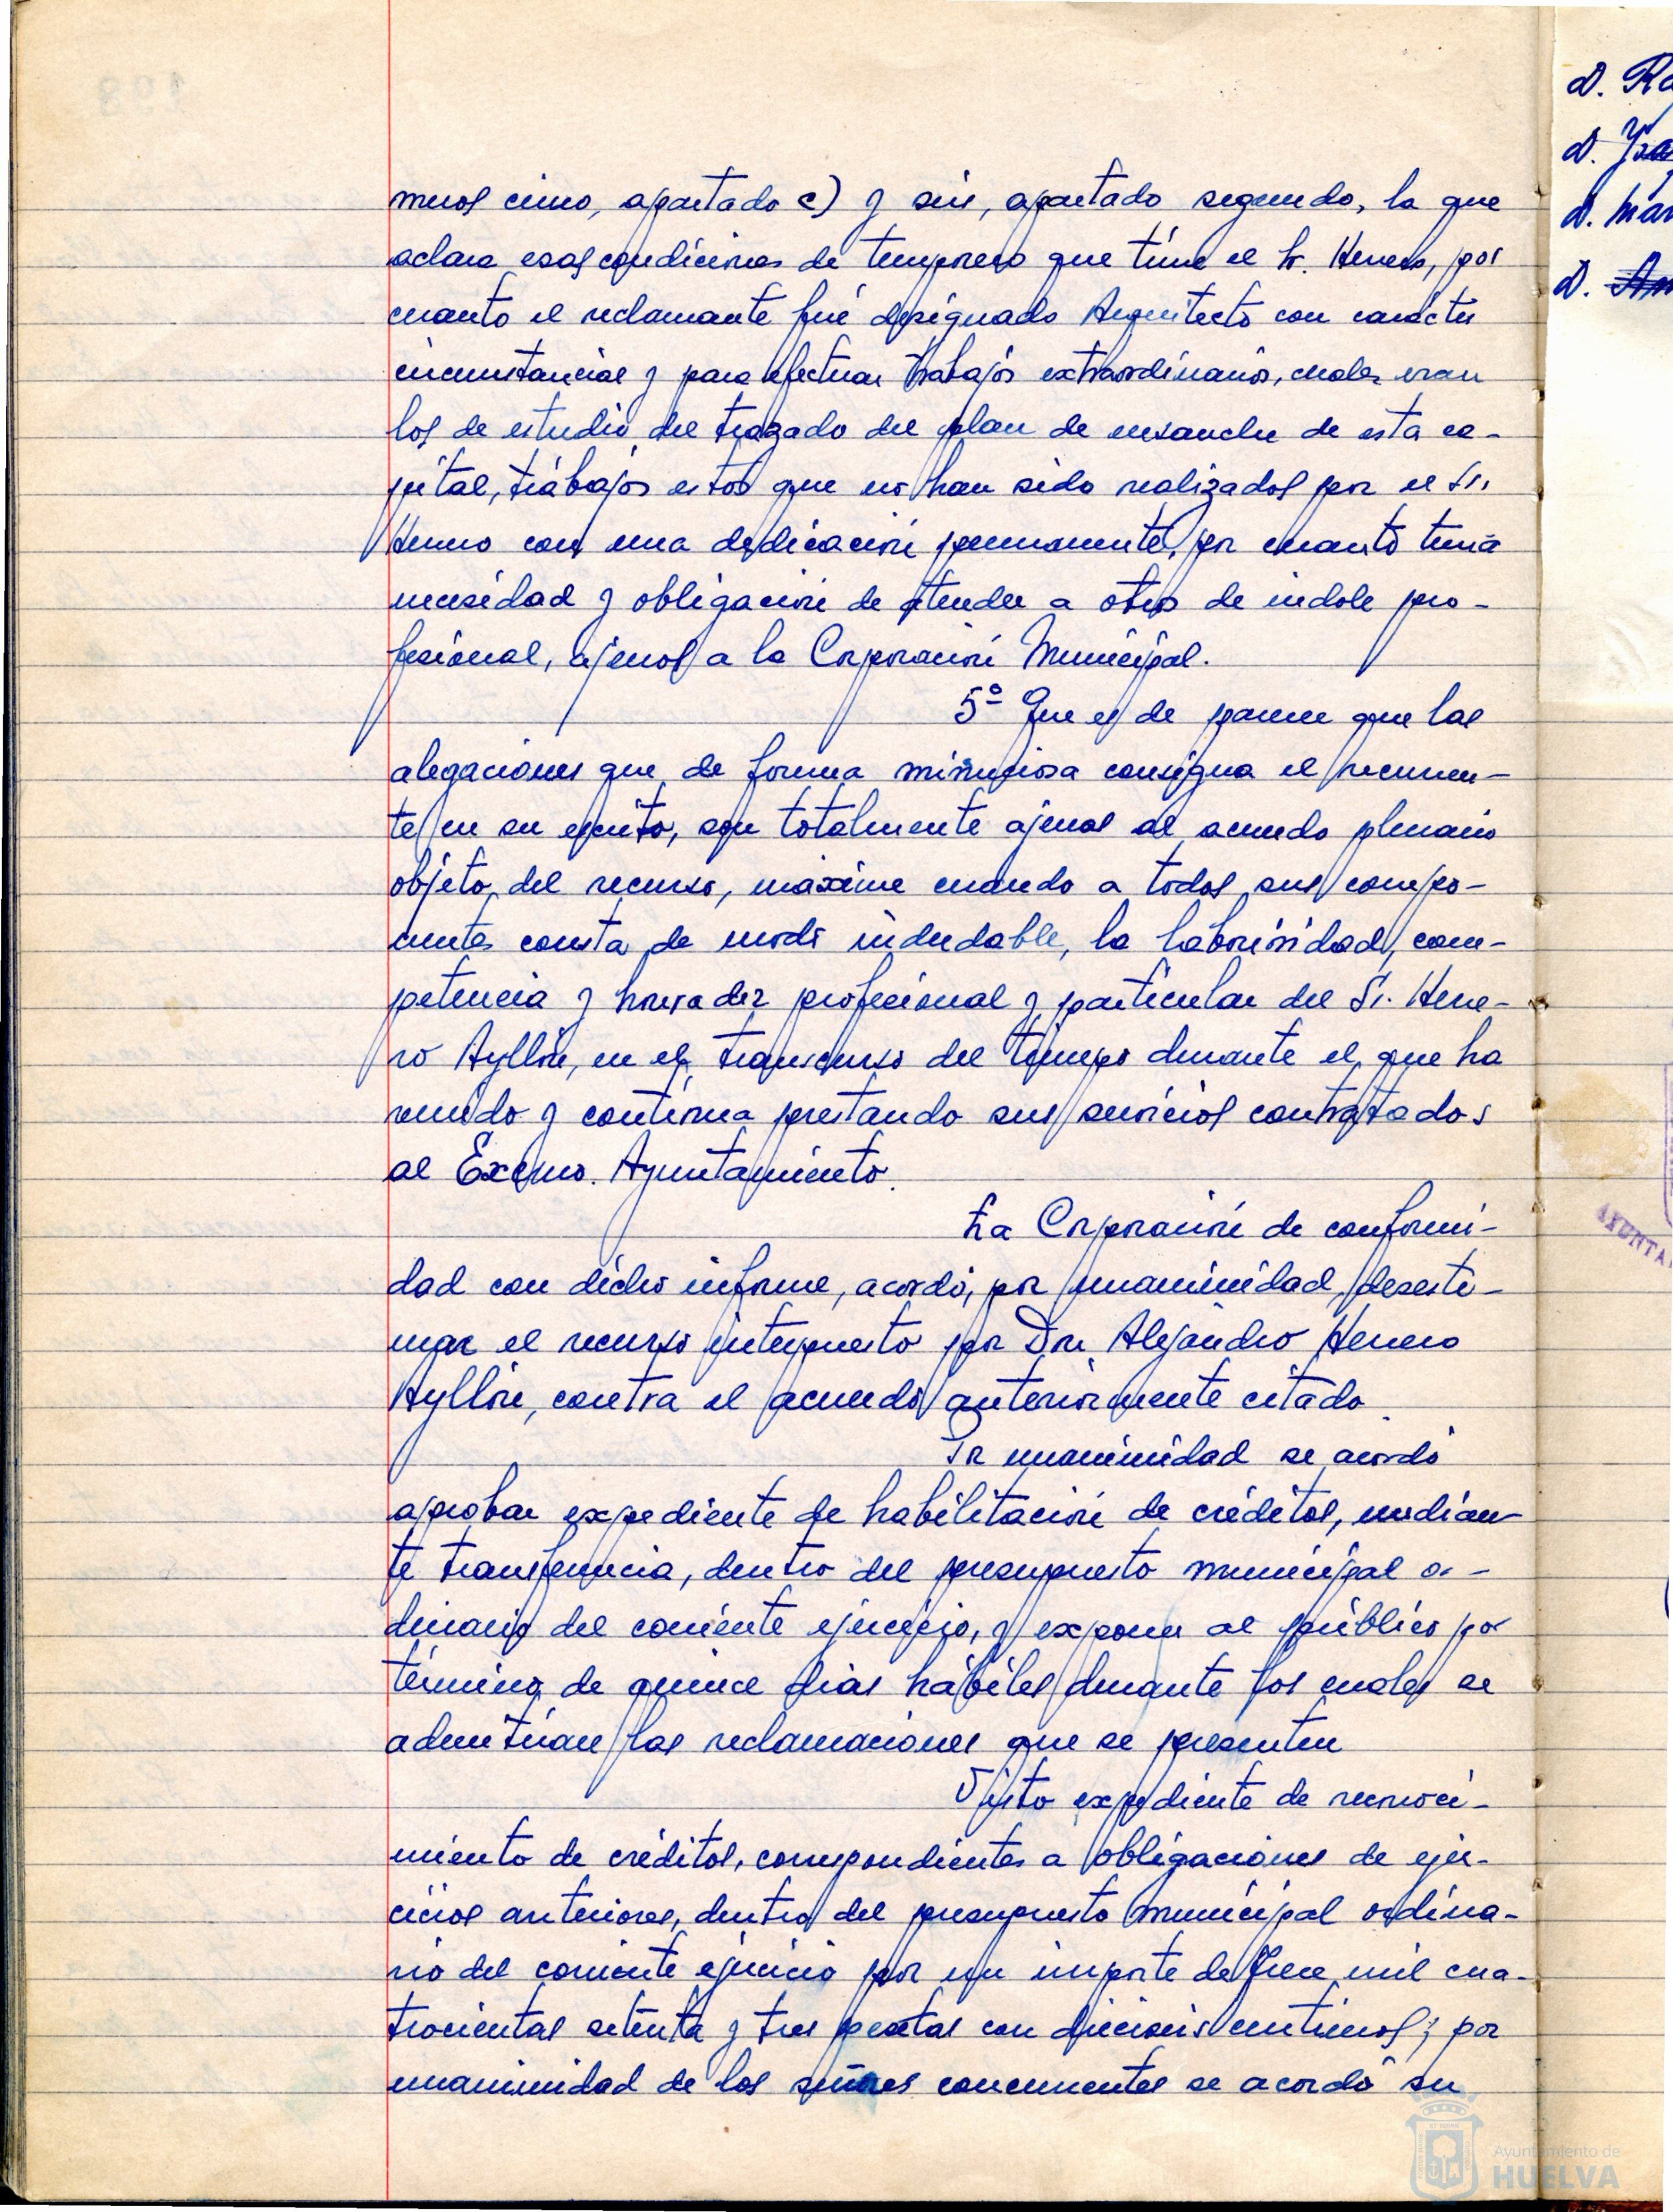 meros cinco, apartado c) y seis, apartado segundo, la que
aclara esas condiciones de temporero que tiene el Sr. Herrero, por
cuanto el reclamante fué designado Arquitecto con carácter
circunstancial y para efectuar trabajos extraordinarios, cuales eran
los de estudio del trazado del plan de ensanche de esta ca-
pital, trabajos estos que no han sido realizados por el Sr.
Herrero con una dedicación permanente, por cuanto tenía
necesidad y obligación de atender a otros de indole pro-
fesional, ajenos a la Corporación Municipal.
5º Que es de parecer que las
alegaciones que de forma minuciosa consigna el recurren-
te en su escrito, son totalmente ajenas al acuerdo plenario
objeto del recurso, máxime cuando a todos sus compo-
nentes consta de modo indudable, la laboriosidad, com-
petencia y honradez profesional y particular del Sr. Herre-
ro Ayllón, en el transcurso del tiempo durante el que ha
venido y continua prestando sus servicios contratados
al Excmo. Ayuntamiento.
La Corporación de conformi-
dad con dicho informe, acordó, por unanimidad, desesti-
mar el recurso interpuesto por Don Alejandro Herrero
Ayllón, contra el acuerdo anteriormente citado.
Por unanimidad se acordó
aprobar expediente de habilitación de créditos, median-
te transferencia, dentro del presupuesto municipal or-
dinario del corriente ejercicio, y exponer al público por
término de quince dias hábiles durante los cuales se
admitirían las reclamaciones que se presenten
Visto expediente de reconoci-
miento de créditos, correspondientes a obligaciones de ejer-
cicios anteriores, dentro del presupuesto municipal ordina-
rio del corriente ejercicio por un importe de trece mil cua-
trocientas setenta y tres pesetas con dieciseis centimos; por
unanimidad de los señores concurrentes se acordó su
D.
D.
D.
D.
Ayuntamiento de
HUELVA